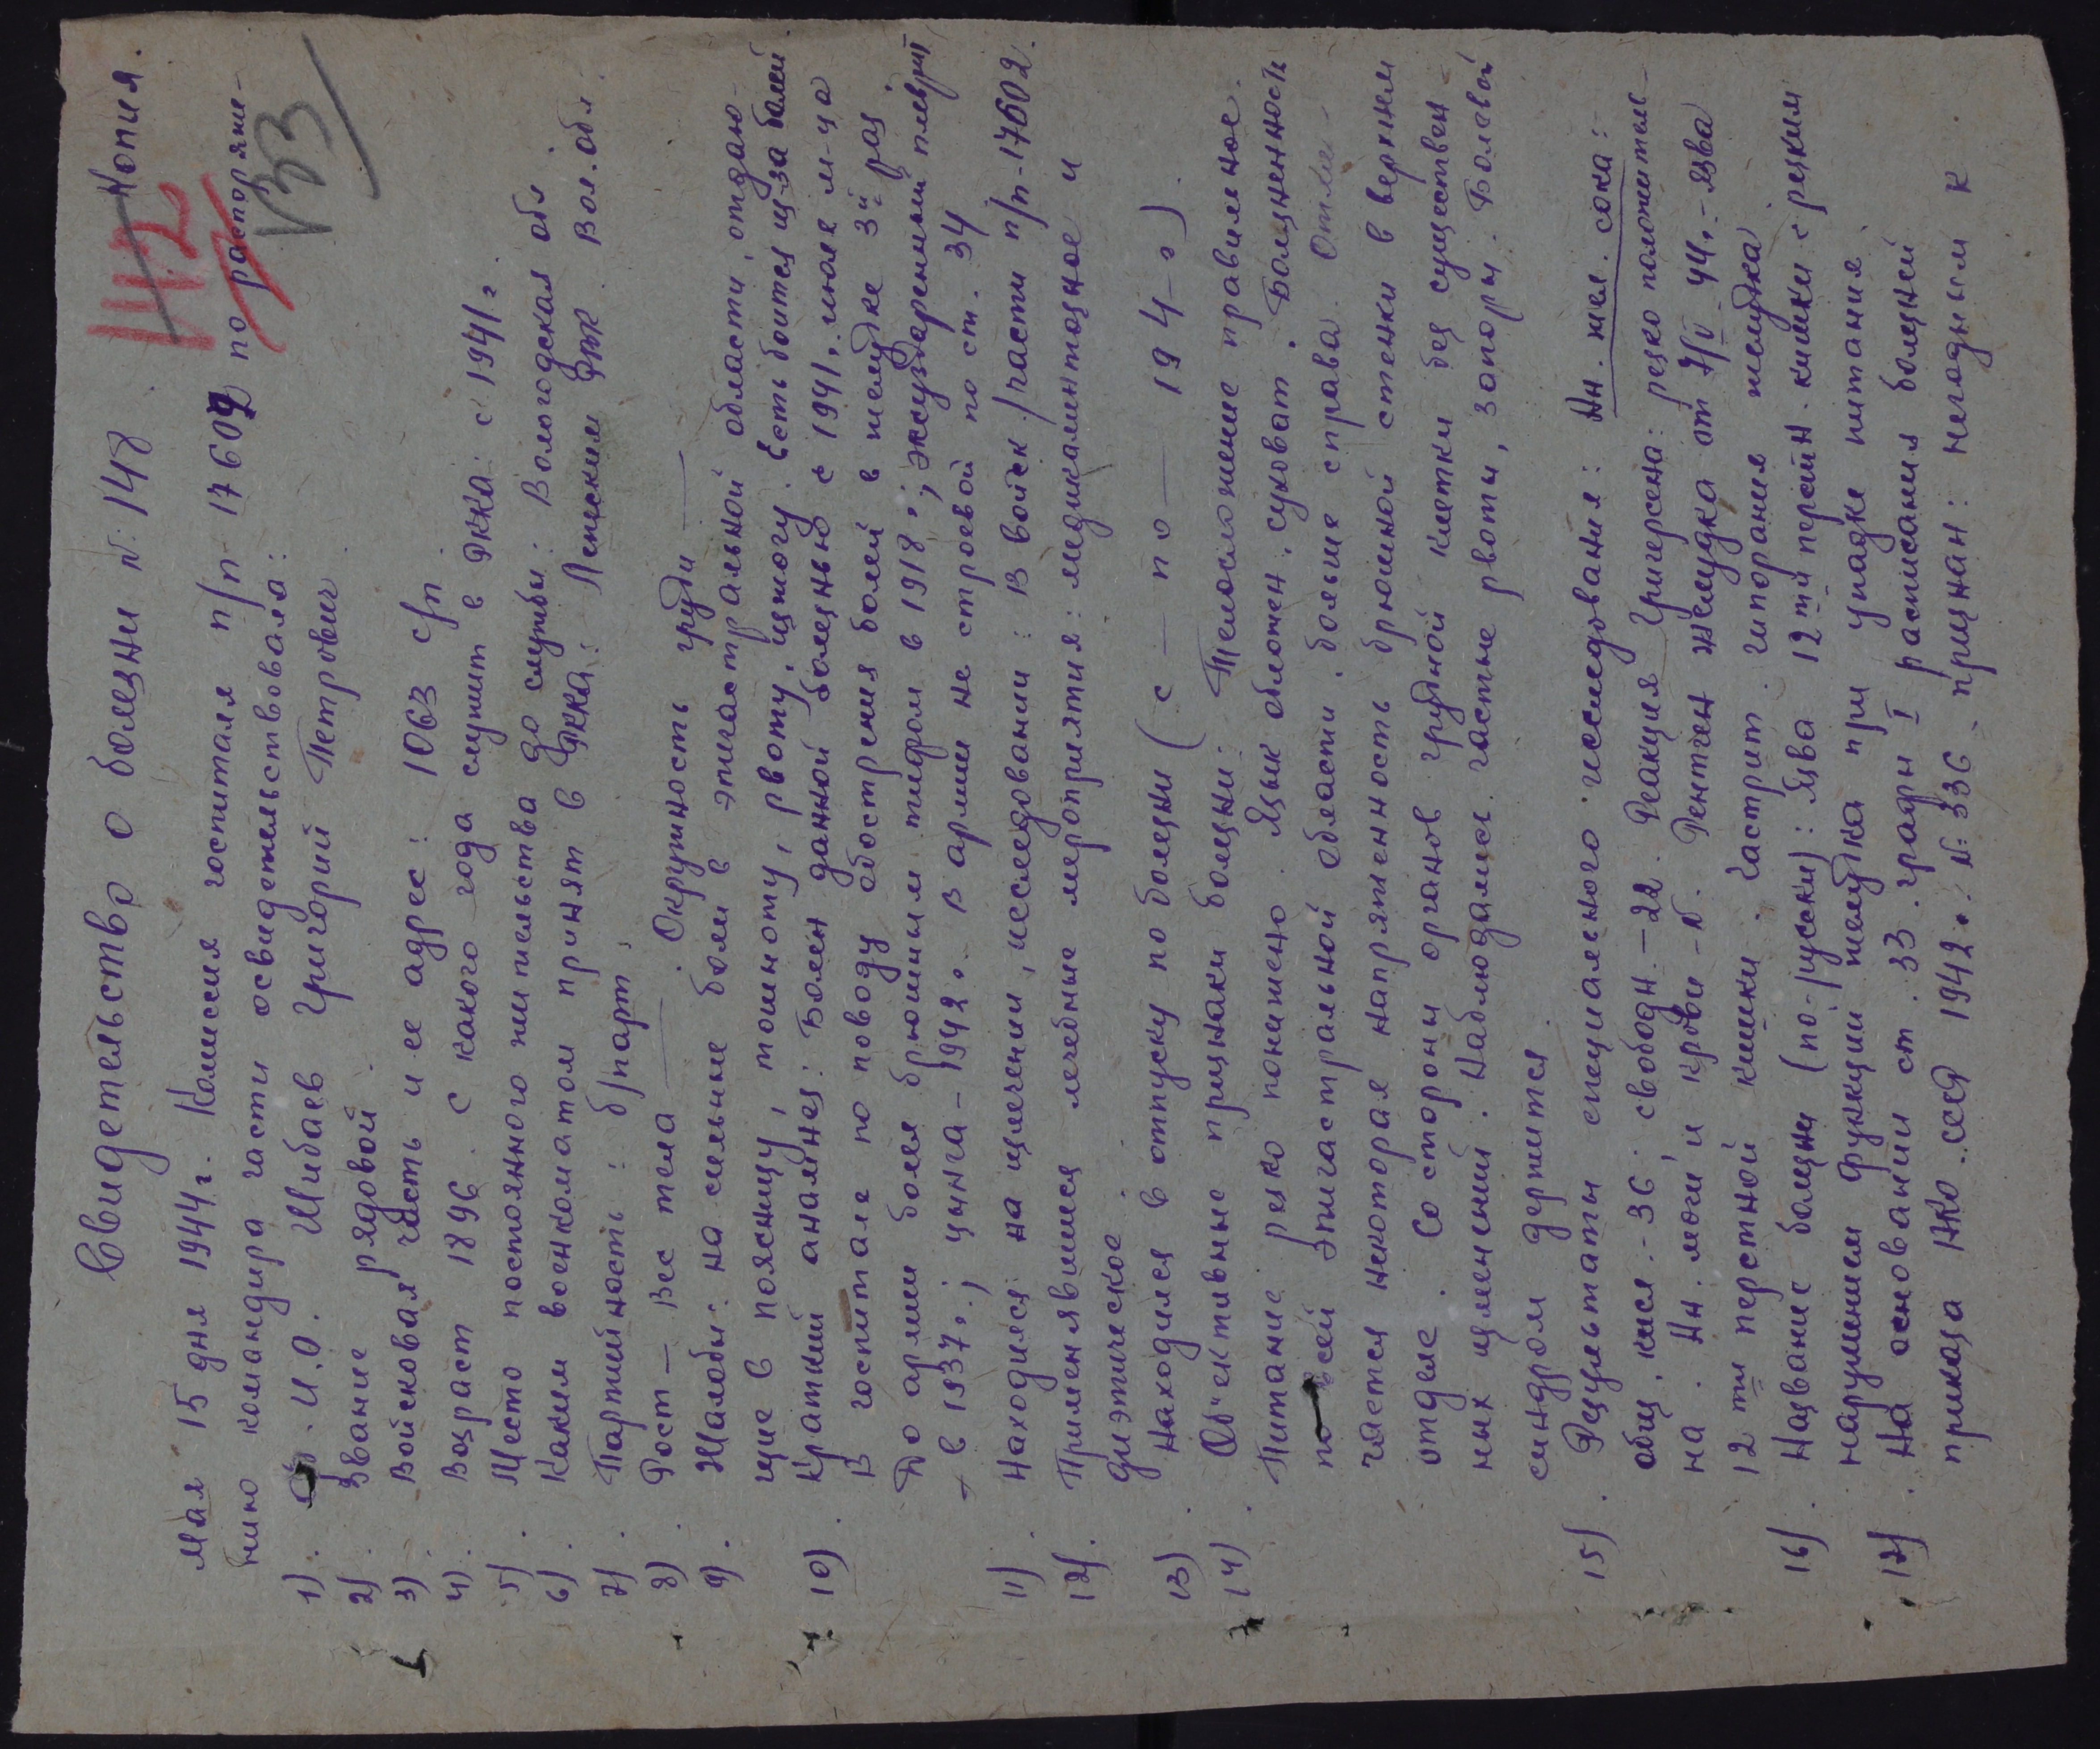 Копия.
142
153
Свидетельство о болезни №: 148
Мая 15 дня 1944 г. Комиссия госпиталя п/п 17602 по распоряже-
нию командира части освидетельствовала:
1). Ф.И.О. Шибаев Григорий Петрович
2). Звание рядовой.
3) Войсковая часть и ее адрес: 1063 с/п.
4). Возраст 1896. С какого года служит в РККА: с 1941 г.
5). Место постоянного жительства до службы: Вологодская обл
6). Каким военкоматом принят в РККА: Ленским РВК. Вол. обл.
7). Партийность: б/парт.
8). Рост — Вес тела — Окружность груди —
9). Жалобы: на сильные боли в эпигастральной области, отдаю-
щие в поясницу, тошноту, рвоту, изжогу. Есть боится из-за болей
10). Краткий анамнез: Болен данной болезнью с 1941г. июля м-ца
В госпитале по поводу обострения болей в желудке 3й раз
До армии болел брюшным тифом в 1918г.; эксударенный плеврит
– в 1937г.; цынга – 1942г. В армии не строевой по ст. 34
11). Находился на излечении, исследовании: В войск/части п/п-17602.
12). Применявшиеся лечебные мероприятия: медикаментозное и
диэтическое.
13). Находился в отпуску по болезни (с — по — 194-г).
14). Об'ективные признаки болезни: Телосложение правильное.
Питание резко понижено. Язык обложен, суховат. Болезненность
по всей эпигастральной области, больше справа. Отме-
чается некоторая напряженность брюшной стенки в верхнем
отделе. Со стороны органов грудной клетки без существен-
ных изменений. Наблюдались частые рвоты, запоры. Болевой
синдром держится.
15). Результаты специального исследования: Ан. жел. сока:-
общ. кисл.-36. свободн.-22. Реакция Григерсена: резко положитель-
на. Ан. мочи и крови -N. Рентген желудка от 7/V-44г.- Язва
12ти перстной кишки. Гастрит. Гипорания желудка
16). Название болезни (по-русски): Язва 12ти перстн. кишки с резким
нарушением функции желудка при упадке питания.
17). На основании ст. 33. графы I расписания болезней
приказа НКО. СССР 1942г. №: 336 - признан: негодным к